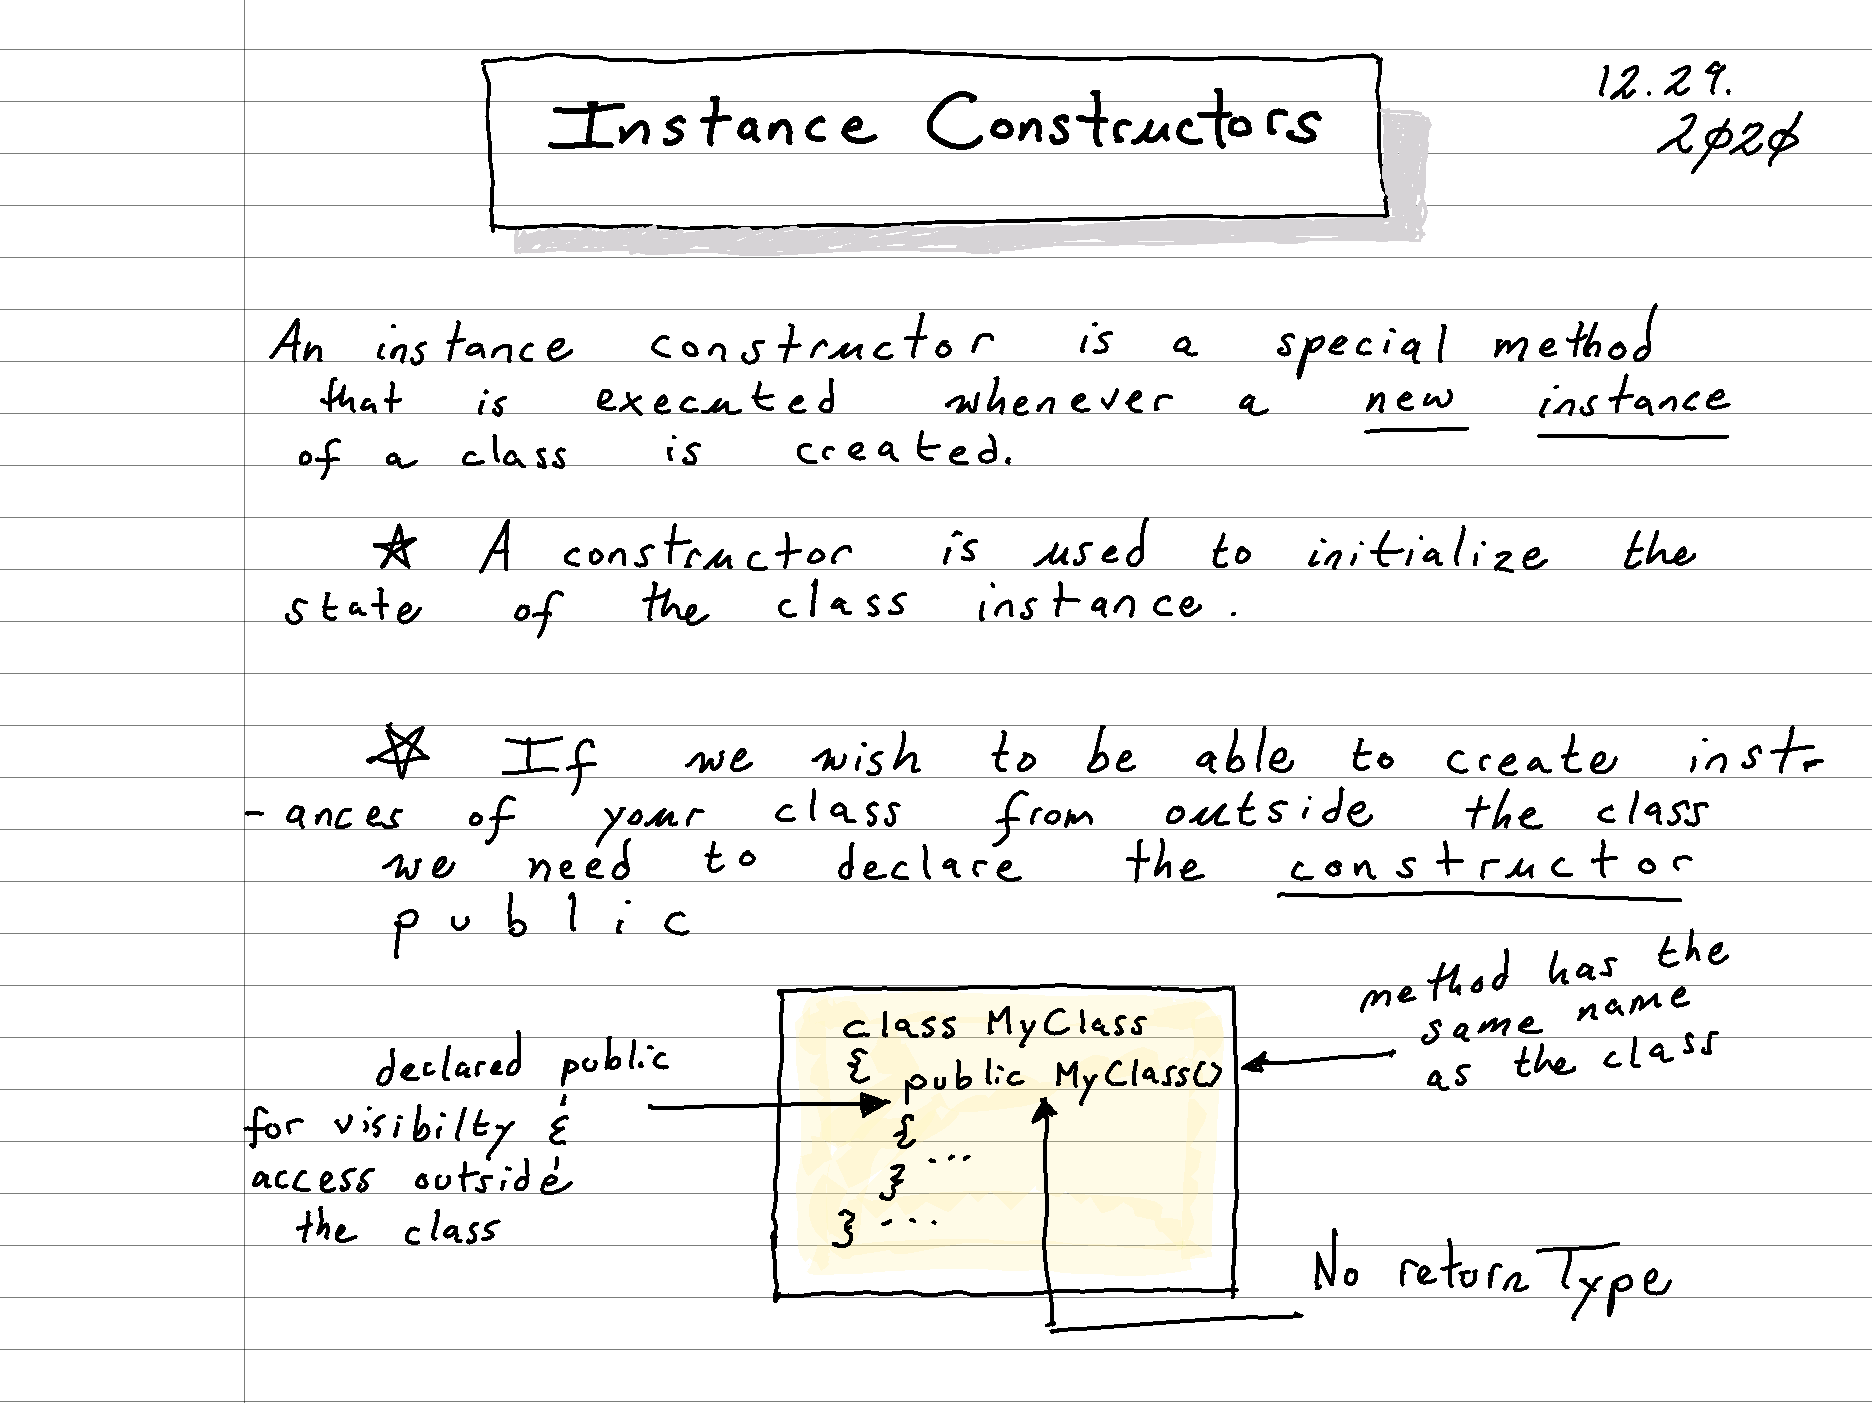 Instance Constructors
12.29.
2020
An instance constructor is a special method
that is executed whenever a new instance
of a class is created.
☆ A constructor is used to initialize the
state of the class instance.
☆ If we wish to be able to create inst-
-ances of your class from outside the class
we need to declare the constructor
public
method has the
same name
as the class
class MyClass
{
public MyClass()
{
...
}
} ...
declared public
for visibilty &
access outside
the class
No return Type